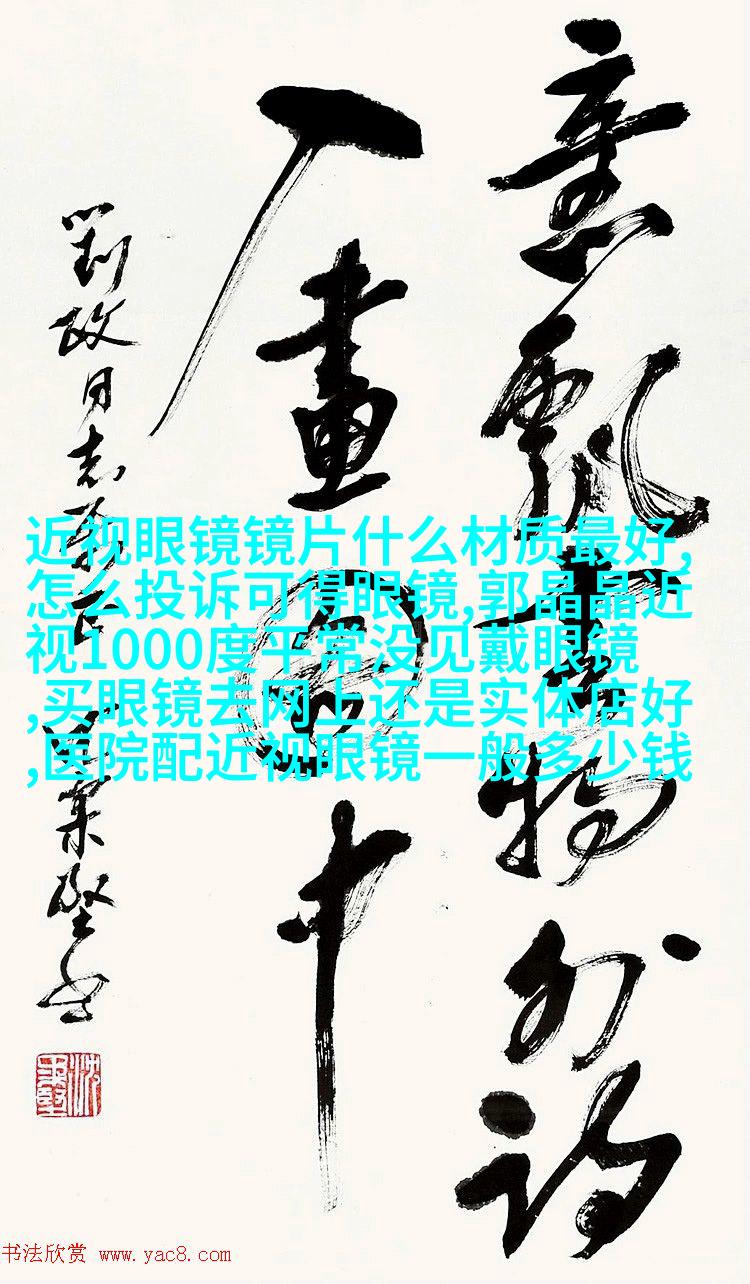 意飄云物外詩
入畫圖中
劉政同志
近视眼镜镜片什么材质最好,
怎么投诉可得眼镜,郭晶晶近
视1000度平常没见戴眼镜
,买眼镜去网上还是实体店好
,医院配近视眼镜一般多少钱
书法欣赏 www.yac8.com